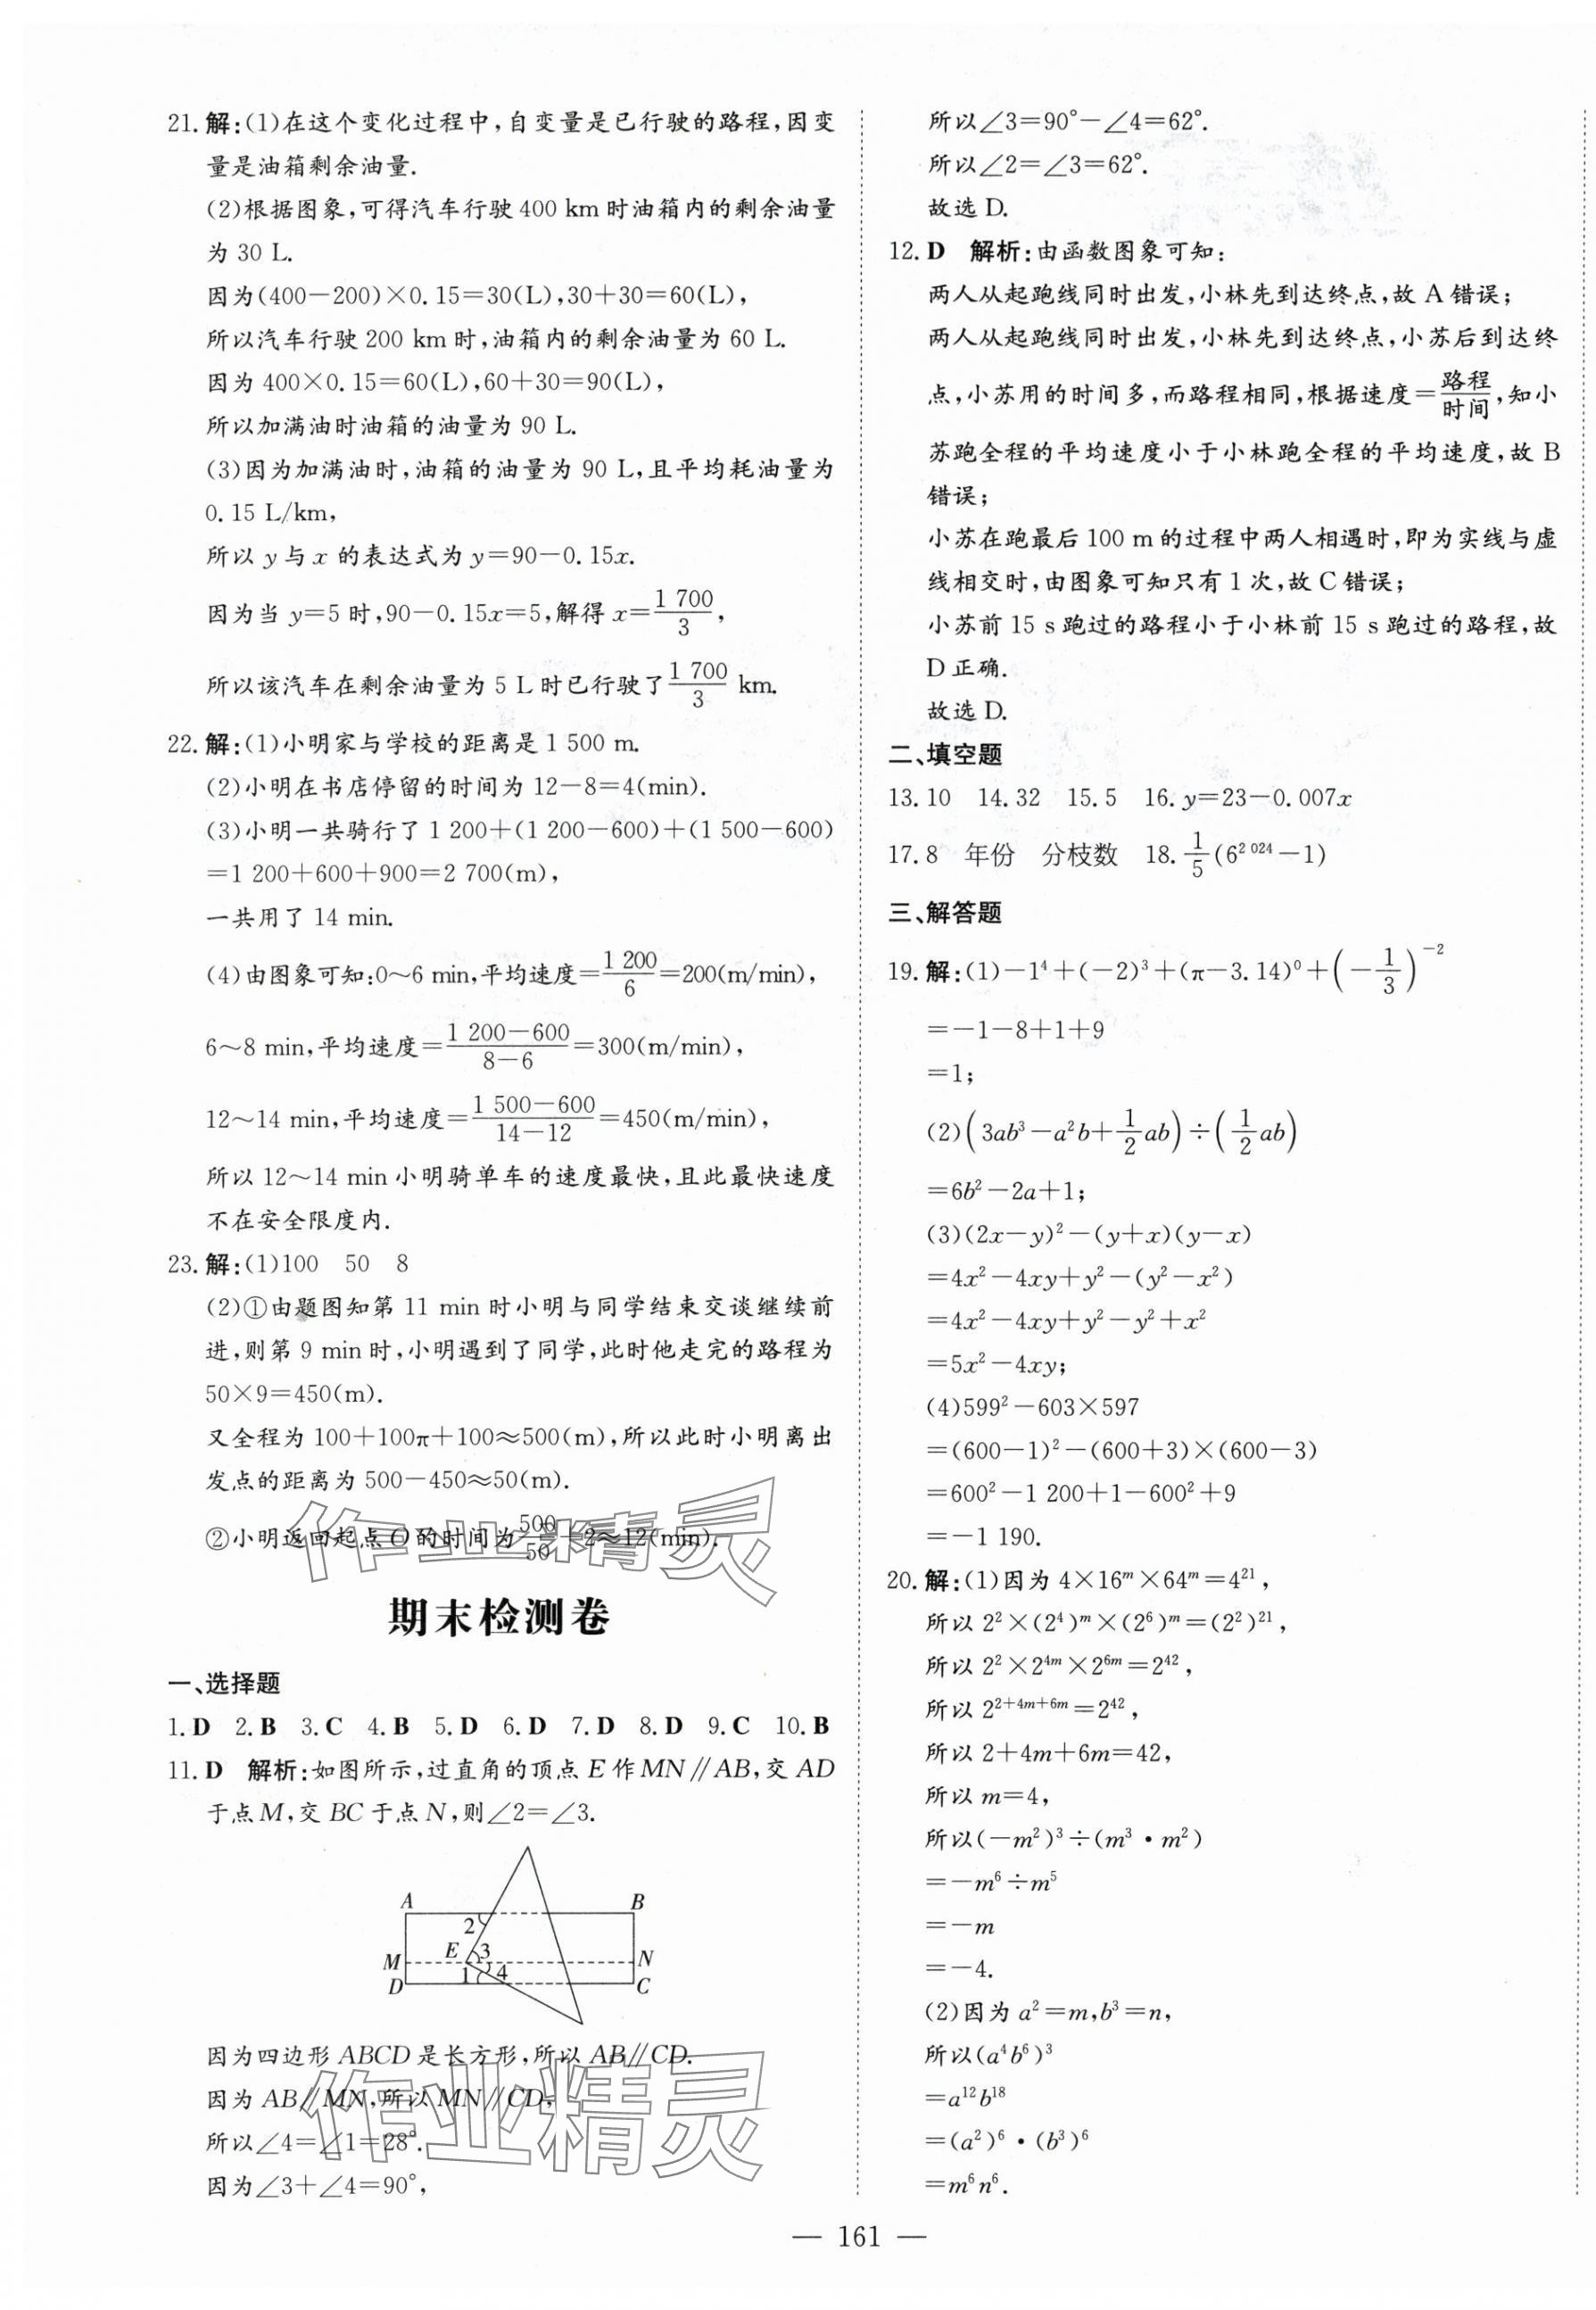 21.解:(1)在这个变化过程中,自变量是已行驶的路程,因变
量是油箱剩余油量.
(2)根据图象,可得汽车行驶400 km时油箱内的剩余油量
为30 L.
因为(400-200)×0.15=30(L),30+30=60(L),
所以汽车行驶200 km时,油箱内的剩余油量为60 L.
因为400×0.15=60(L),60+30=90(L),
所以加满油时油箱的油量为90 L.
(3)因为加满油时,油箱的油量为90 L,且平均耗油量为
0.15 L/km,
所以y与x的表达式为y=90-0.15x.
因为当y=5时,90-0.15x=5,解得x=1 700/3,
所以该汽车在剩余油量为5 L时已行驶了1 700/3 km.
22.解:(1)小明家与学校的距离是1 500 m.
(2)小明在书店停留的时间为12-8=4(min).
(3)小明一共骑行了1 200+(1 200-600)+(1 500-600)
=1 200+600+900=2 700(m),
一共用了14 min.
(4)由图象可知:0~6 min,平均速度=1 200/6=200(m/min),
6~8 min,平均速度=(1 200-600)/(8-6)=300(m/min),
12~14 min,平均速度=(1 500-600)/(14-12)=450(m/min),
所以12~14 min小明骑单车的速度最快,且此最快速度
不在安全限度内.
23.解:(1)100 50 8
(2)①由题图知第11 min时小明与同学结束交谈继续前
进,则第9 min时,小明遇到了同学,此时他走完的路程为
50×9=450(m).
又全程为100+100π+100≈500(m),所以此时小明离出
发点的距离为500-450≈50(m).
②小明返回起点O的时间为500/50+2≈12(min).
作业精灵
期末检测卷
一、选择题
1.D 2.B 3.C 4.B 5.D 6.D 7.D 8.D 9.C 10.B
11.D 解析:如图所示,过直角的顶点E作MN∥AB,交AD
于点M,交BC于点N,则∠2=∠3.
A B
2
E 3
M N
1 4
D C
因为四边形ABCD是长方形,所以AB∥CD.
因为AB∥MN,所以MN∥CD,
所以∠4=∠1=28°.
因为∠3+∠4=90°,
作业精灵
所以∠3=90°-∠4=62°.
所以∠2=∠3=62°.
故选D.
12.D 解析:由函数图象可知:
两人从起跑线同时出发,小林先到达终点,故A错误;
两人从起跑线同时出发,小林先到达终点,小苏后到达终
点,小苏用的时间多,而路程相同,根据速度=路程/时间,知小
苏跑全程的平均速度小于小林跑全程的平均速度,故B
错误;
小苏在跑最后100 m的过程中两人相遇时,即为实线与虚
线相交时,由图象可知只有1次,故C错误;
小苏前15 s跑过的路程小于小林前15 s跑过的路程,故
D正确.
故选D.
二、填空题
13.10 14.32 15.5 16.y=23-0.007x
17.8 年份 分枝数 18.1/5(6²⁰²⁴-1)
三、解答题
19.解:(1)-1⁴+(-2)³+(π-3.14)⁰+(-1/3)⁻²
=-1-8+1+9
=1;
(2)(3ab³-a²b+1/2ab)÷(1/2ab)
=6b²-2a+1;
(3)(2x-y)²-(y+x)(y-x)
=4x²-4xy+y²-(y²-x²)
=4x²-4xy+y²-y²+x²
=5x²-4xy;
(4)599²-603×597
=(600-1)²-(600+3)×(600-3)
=600²-1 200+1-600²+9
=-1 190.
20.解:(1)因为4×16ᵐ×64ᵐ=4²¹,
所以2²×(2⁴)ᵐ×(2⁶)ᵐ=(2²)²¹,
所以2²×2⁴ᵐ×2⁶ᵐ=2⁴²,
所以2²⁺⁴ᵐ⁺⁶ᵐ=2⁴²,
所以2+4m+6m=42,
所以m=4,
所以(-m²)³÷(m³·m²)
=-m⁶÷m⁵
=-m
=-4.
(2)因为a²=m,b³=n,
所以(a⁴b⁶)³
=a¹²b¹⁸
=(a²)⁶·(b³)⁶
=m⁶n⁶.
— 161 —